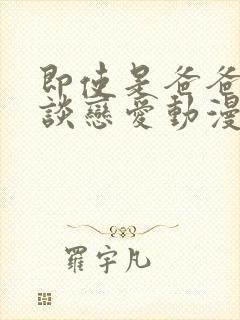 即使是爸爸
談戀愛動漫
羅宇凡